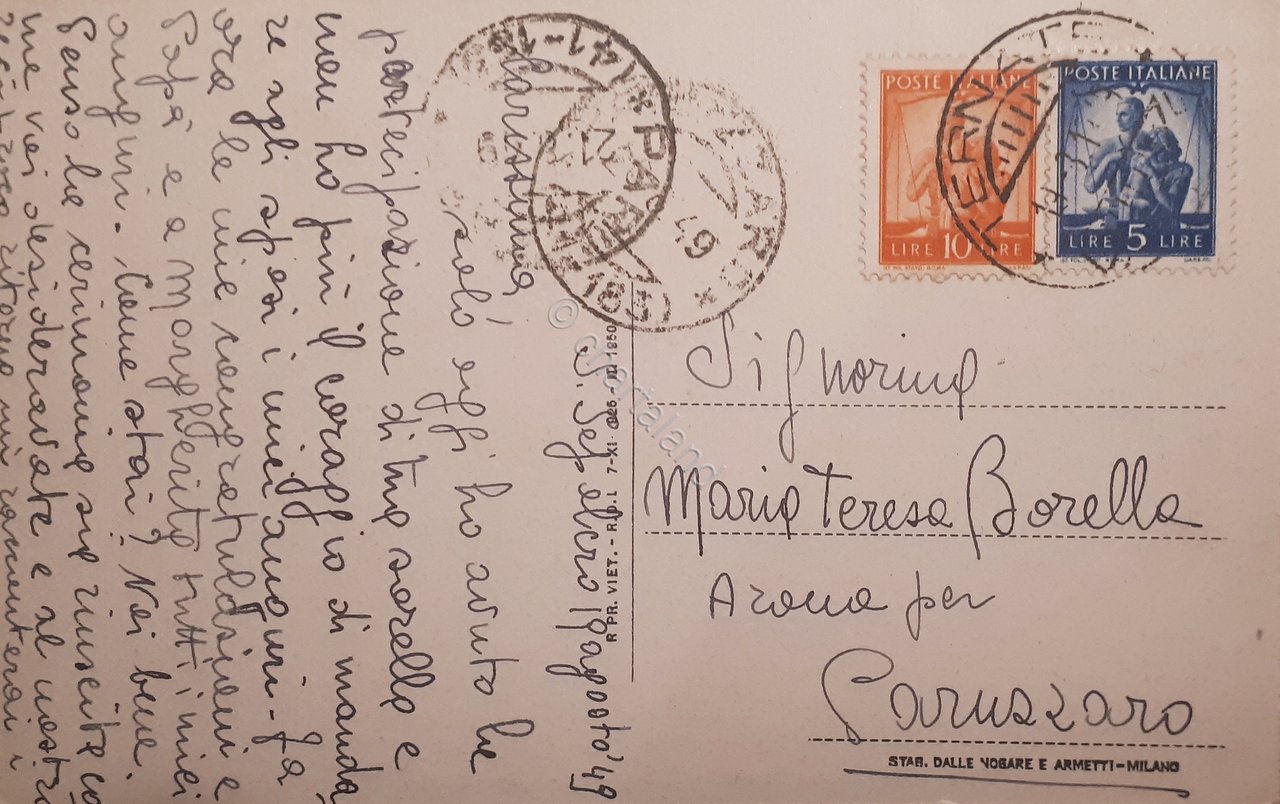 S. Defendente 19 agosto '49
Carissima,
solo oggi ho avuto la
partecipazione di tua sorella e
non ho più il coraggio di manda
re agli sposi i miei auguri - fa
ora le mie congratulazioni a
Papà e a Margherita tutti i miei
auguri. Come stai? Noi bene.
Penso la cerimonia sia riuscita co
me voi desideravate e al nostro
ritorno mi racconterai
POSTE ITALIANE
LIRE 10 LIRE
POSTE ITALIANE
LIRE 5 LIRE
49
Signorina
Maria Teresa Borella
Arona per
Paruzzaro
STAB. DALLE NOGARE E ARMETTI-MILANO
RIPR. VIET. - R.D.L. 7-XI-925 - III-1850
© chartaland